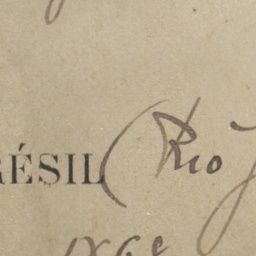 RÉSIL (Rio J
1868